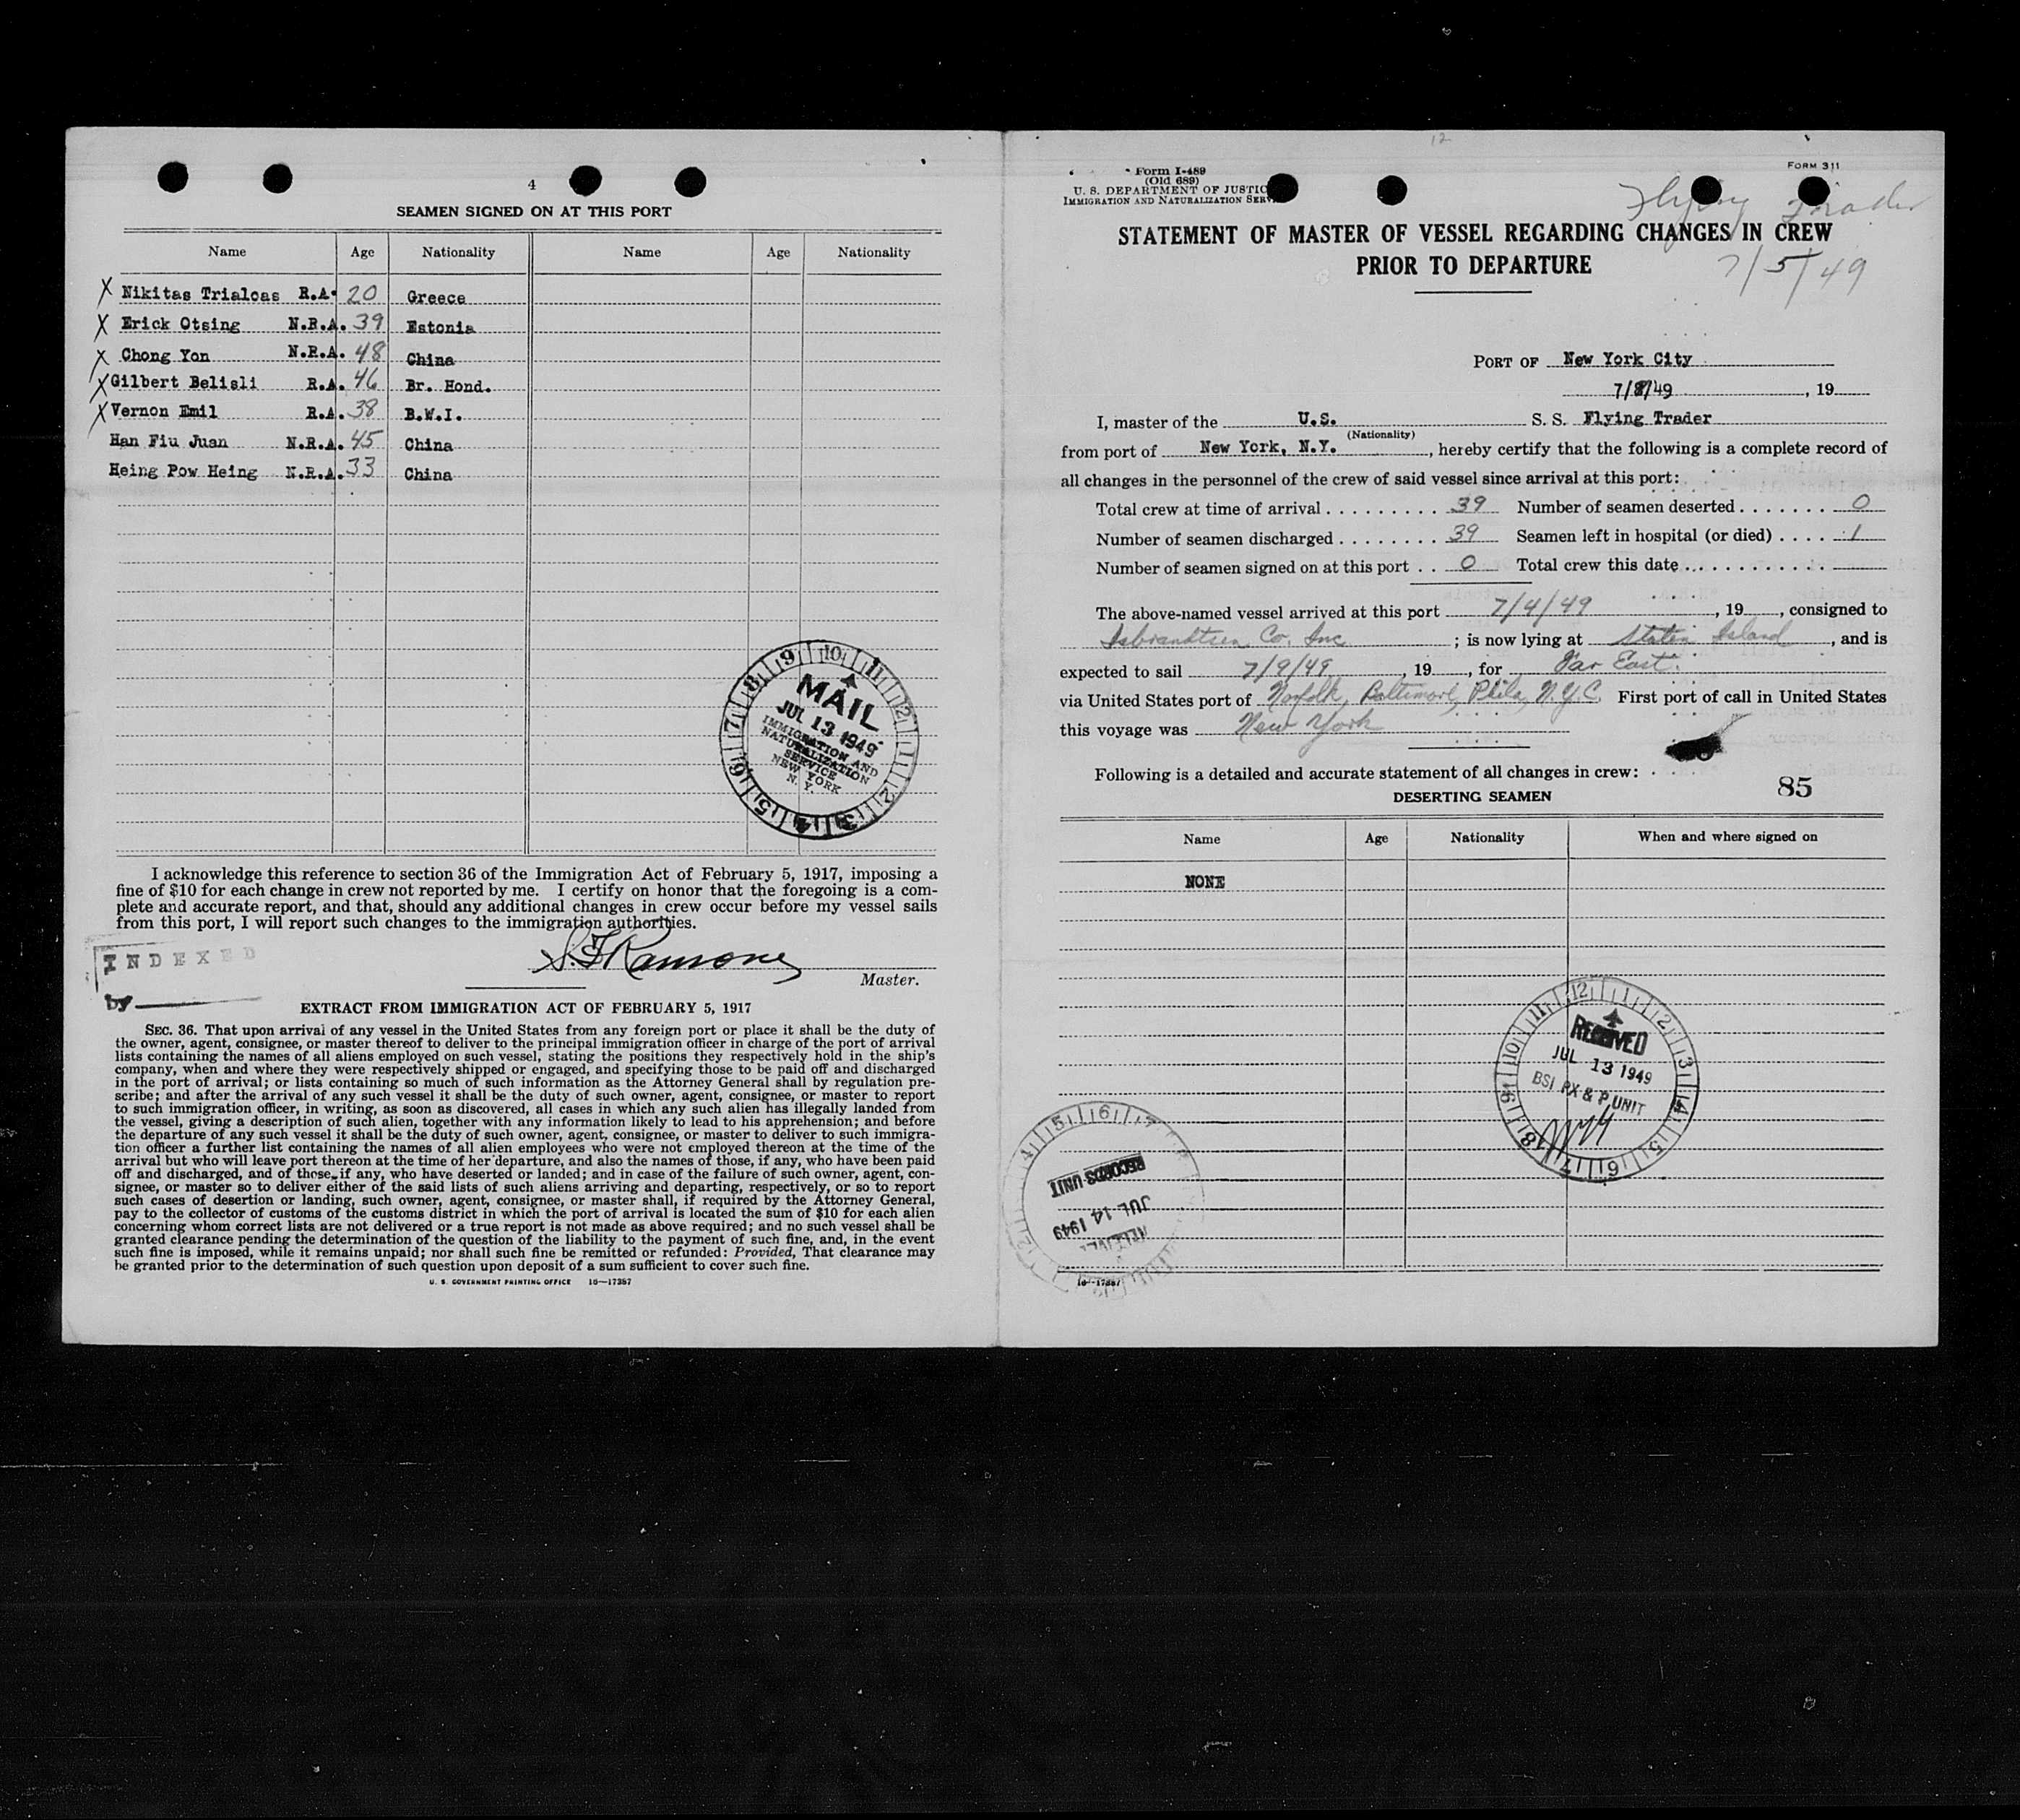 4
SEAMEN SIGNED ON AT THIS PORT
Name Age Nationality Name Age Nationality
X Nikitas Trialoas R.A. 20 Greece
X Erick Otsing N.R.A. 39 Estonia
X Chong Yon N.R.A. 48 China
X Gilbert Belisli R.A. 46 Br. Hond.
X Vernon Emil R.A. 38 B.W.I.
Han Fiu Juan N.R.A. 45 China
Heing Pow Heing N.R.A. 33 China
MAIL
JUL 13 1949
IMMIGRATION AND
NATURALIZATION
SERVICE
NEW YORK
N. Y.
I acknowledge this reference to section 36 of the Immigration Act of February 5, 1917, imposing a
fine of $10 for each change in crew not reported by me. I certify on honor that the foregoing is a com-
plete and accurate report, and that, should any additional changes in crew occur before my vessel sails
from this port, I will report such changes to the immigration authorities.
INDEXED
by
Master.
EXTRACT FROM IMMIGRATION ACT OF FEBRUARY 5, 1917
SEC. 36. That upon arrival of any vessel in the United States from any foreign port or place it shall be the duty of
the owner, agent, consignee, or master thereof to deliver to the principal immigration officer in charge of the port of arrival
lists containing the names of all aliens employed on such vessel, stating the positions they respectively hold in the ship's
company, when and where they were respectively shipped or engaged, and specifying those to be paid off and discharged
in the port of arrival; or lists containing so much of such information as the Attorney General shall by regulation pre-
scribe; and after the arrival of any such vessel it shall be the duty of such owner, agent, consignee, or master to report
to such immigration officer, in writing, as soon as discovered, all cases in which any such alien has illegally landed from
the vessel, giving a description of such alien, together with any information likely to lead to his apprehension; and before
the departure of any such vessel it shall be the duty of such owner, agent, consignee, or master to deliver to such immigra-
tion officer a further list containing the names of all alien employees who were not employed thereon at the time of the
arrival but who will leave port thereon at the time of her departure, and also the names of those, if any, who have been paid
off and discharged, and of those, if any, who have deserted or landed; and in case of the failure of such owner, agent, con-
signee, or master so to deliver either of the said lists of such aliens arriving and departing, respectively, or so to report
such cases of desertion or landing, such owner, agent, consignee, or master shall, if required by the Attorney General,
pay to the collector of customs of the customs district in which the port of arrival is located the sum of $10 for each alien
concerning whom correct lists are not delivered or a true report is not made as above required; and no such vessel shall be
granted clearance pending the determination of the question of the liability to the payment of such fine, and, in the event
such fine is imposed, while it remains unpaid; nor shall such fine be remitted or refunded: Provided, That clearance may
be granted prior to the determination of such question upon deposit of a sum sufficient to cover such fine.
U. S. GOVERNMENT PRINTING OFFICE 16—17387
12
Form I-489
(Old 689)
U. S. DEPARTMENT OF JUSTIC
IMMIGRATION AND NATURALIZATION SERV
FORM 311
Flying Trader
7/5/49
STATEMENT OF MASTER OF VESSEL REGARDING CHANGES IN CREW
PRIOR TO DEPARTURE
PORT OF New York City
7/8/49 , 19
I, master of the U.S. S. S. Flying Trader
(Nationality)
from port of New York, N.Y. , hereby certify that the following is a complete record of
all changes in the personnel of the crew of said vessel since arrival at this port:
Total crew at time of arrival 39 Number of seamen deserted 0
Number of seamen discharged 39 Seamen left in hospital (or died) 1
Number of seamen signed on at this port 0 Total crew this date
The above-named vessel arrived at this port 7/4/49 , 19 , consigned to
Isbrandtsen Co. Inc ; is now lying at Staten Island , and is
expected to sail 7/9/49 , 19 , for Far East.
via United States port of Norfolk, Baltimore, Phila, N.Y.C. First port of call in United States
this voyage was New York
Following is a detailed and accurate statement of all changes in crew:
85
DESERTING SEAMEN
Name Age Nationality When and where signed on
NONE
RECEIVED
JUL 13 1949
BSI PX & P UNIT
RECORDS UNIT
JUL 14 1949
16—17387